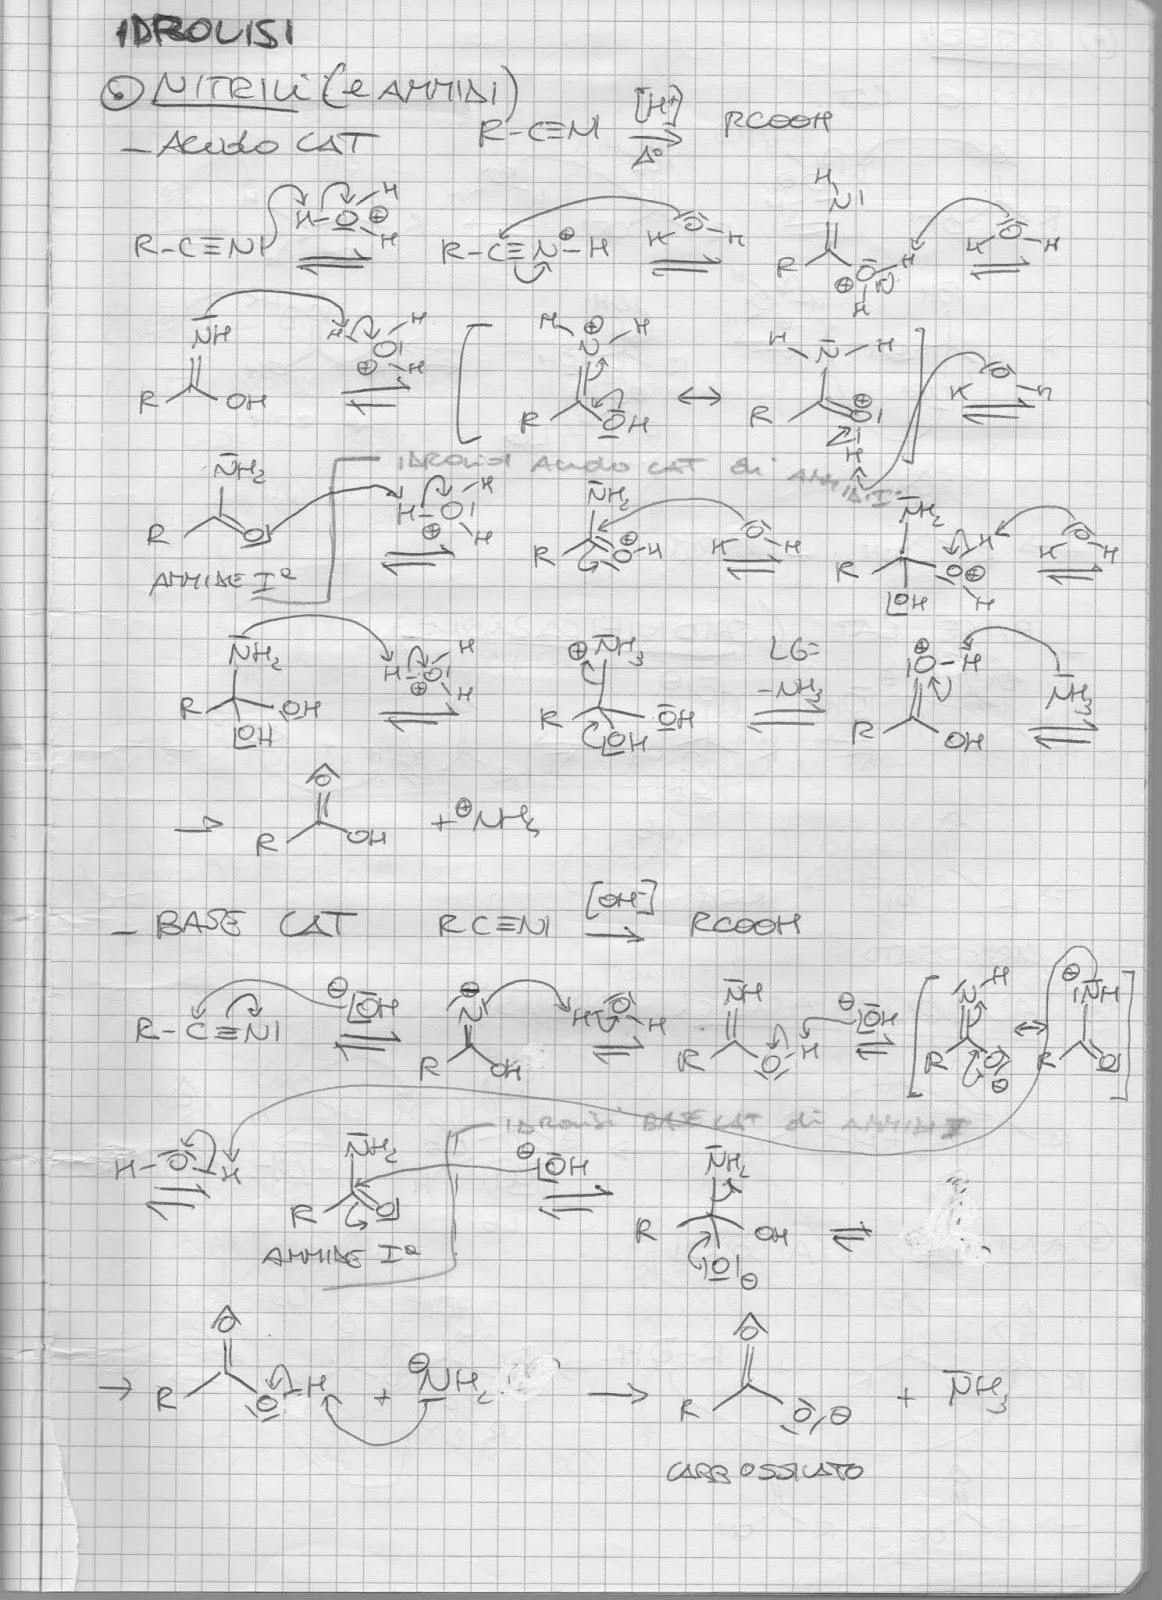 IDROLISI
NITRILI (e AMMIDI)
- Acido CAT R-C≡N [H+] Δ° RCOOH
R-C≡N H-O-H H ⊕ R-C≡N-H ⊕ H O H H N R O H H ⊕ H O H
NH R OH H O H H ⊕ H N H ⊕ R OH ↔ H N H R O H ⊕ H O H
IDROLISI Acido CAT di AMMIDI I°
NH2 R O H-O H H ⊕ NH2 R O-H ⊕ H O H NH2 R OH O H H ⊕ H O H
AMMIDE I°
NH2 R OH OH H-O H H ⊕ ⊕ NH3 R OH OH LG= -NH3 ⊕ O-H R OH NH3
→ R O OH + ⊕NH3
- BASE CAT RC≡N [OH-] → RCOOH
R-C≡N ⊖ OH ⊖ N R OH H O H NH R O H ⊖ OH N H R O ⊖ ↔ ⊖ NH R O
IDROLISI BASE CAT di AMMIDI I
H-O-H NH2 R O ⊖ OH NH2 R OH O ⊖
AMMIDE I°
→ R O O H + ⊖ NH2 → R O O ⊖ + NH3
CARBOSSILATO